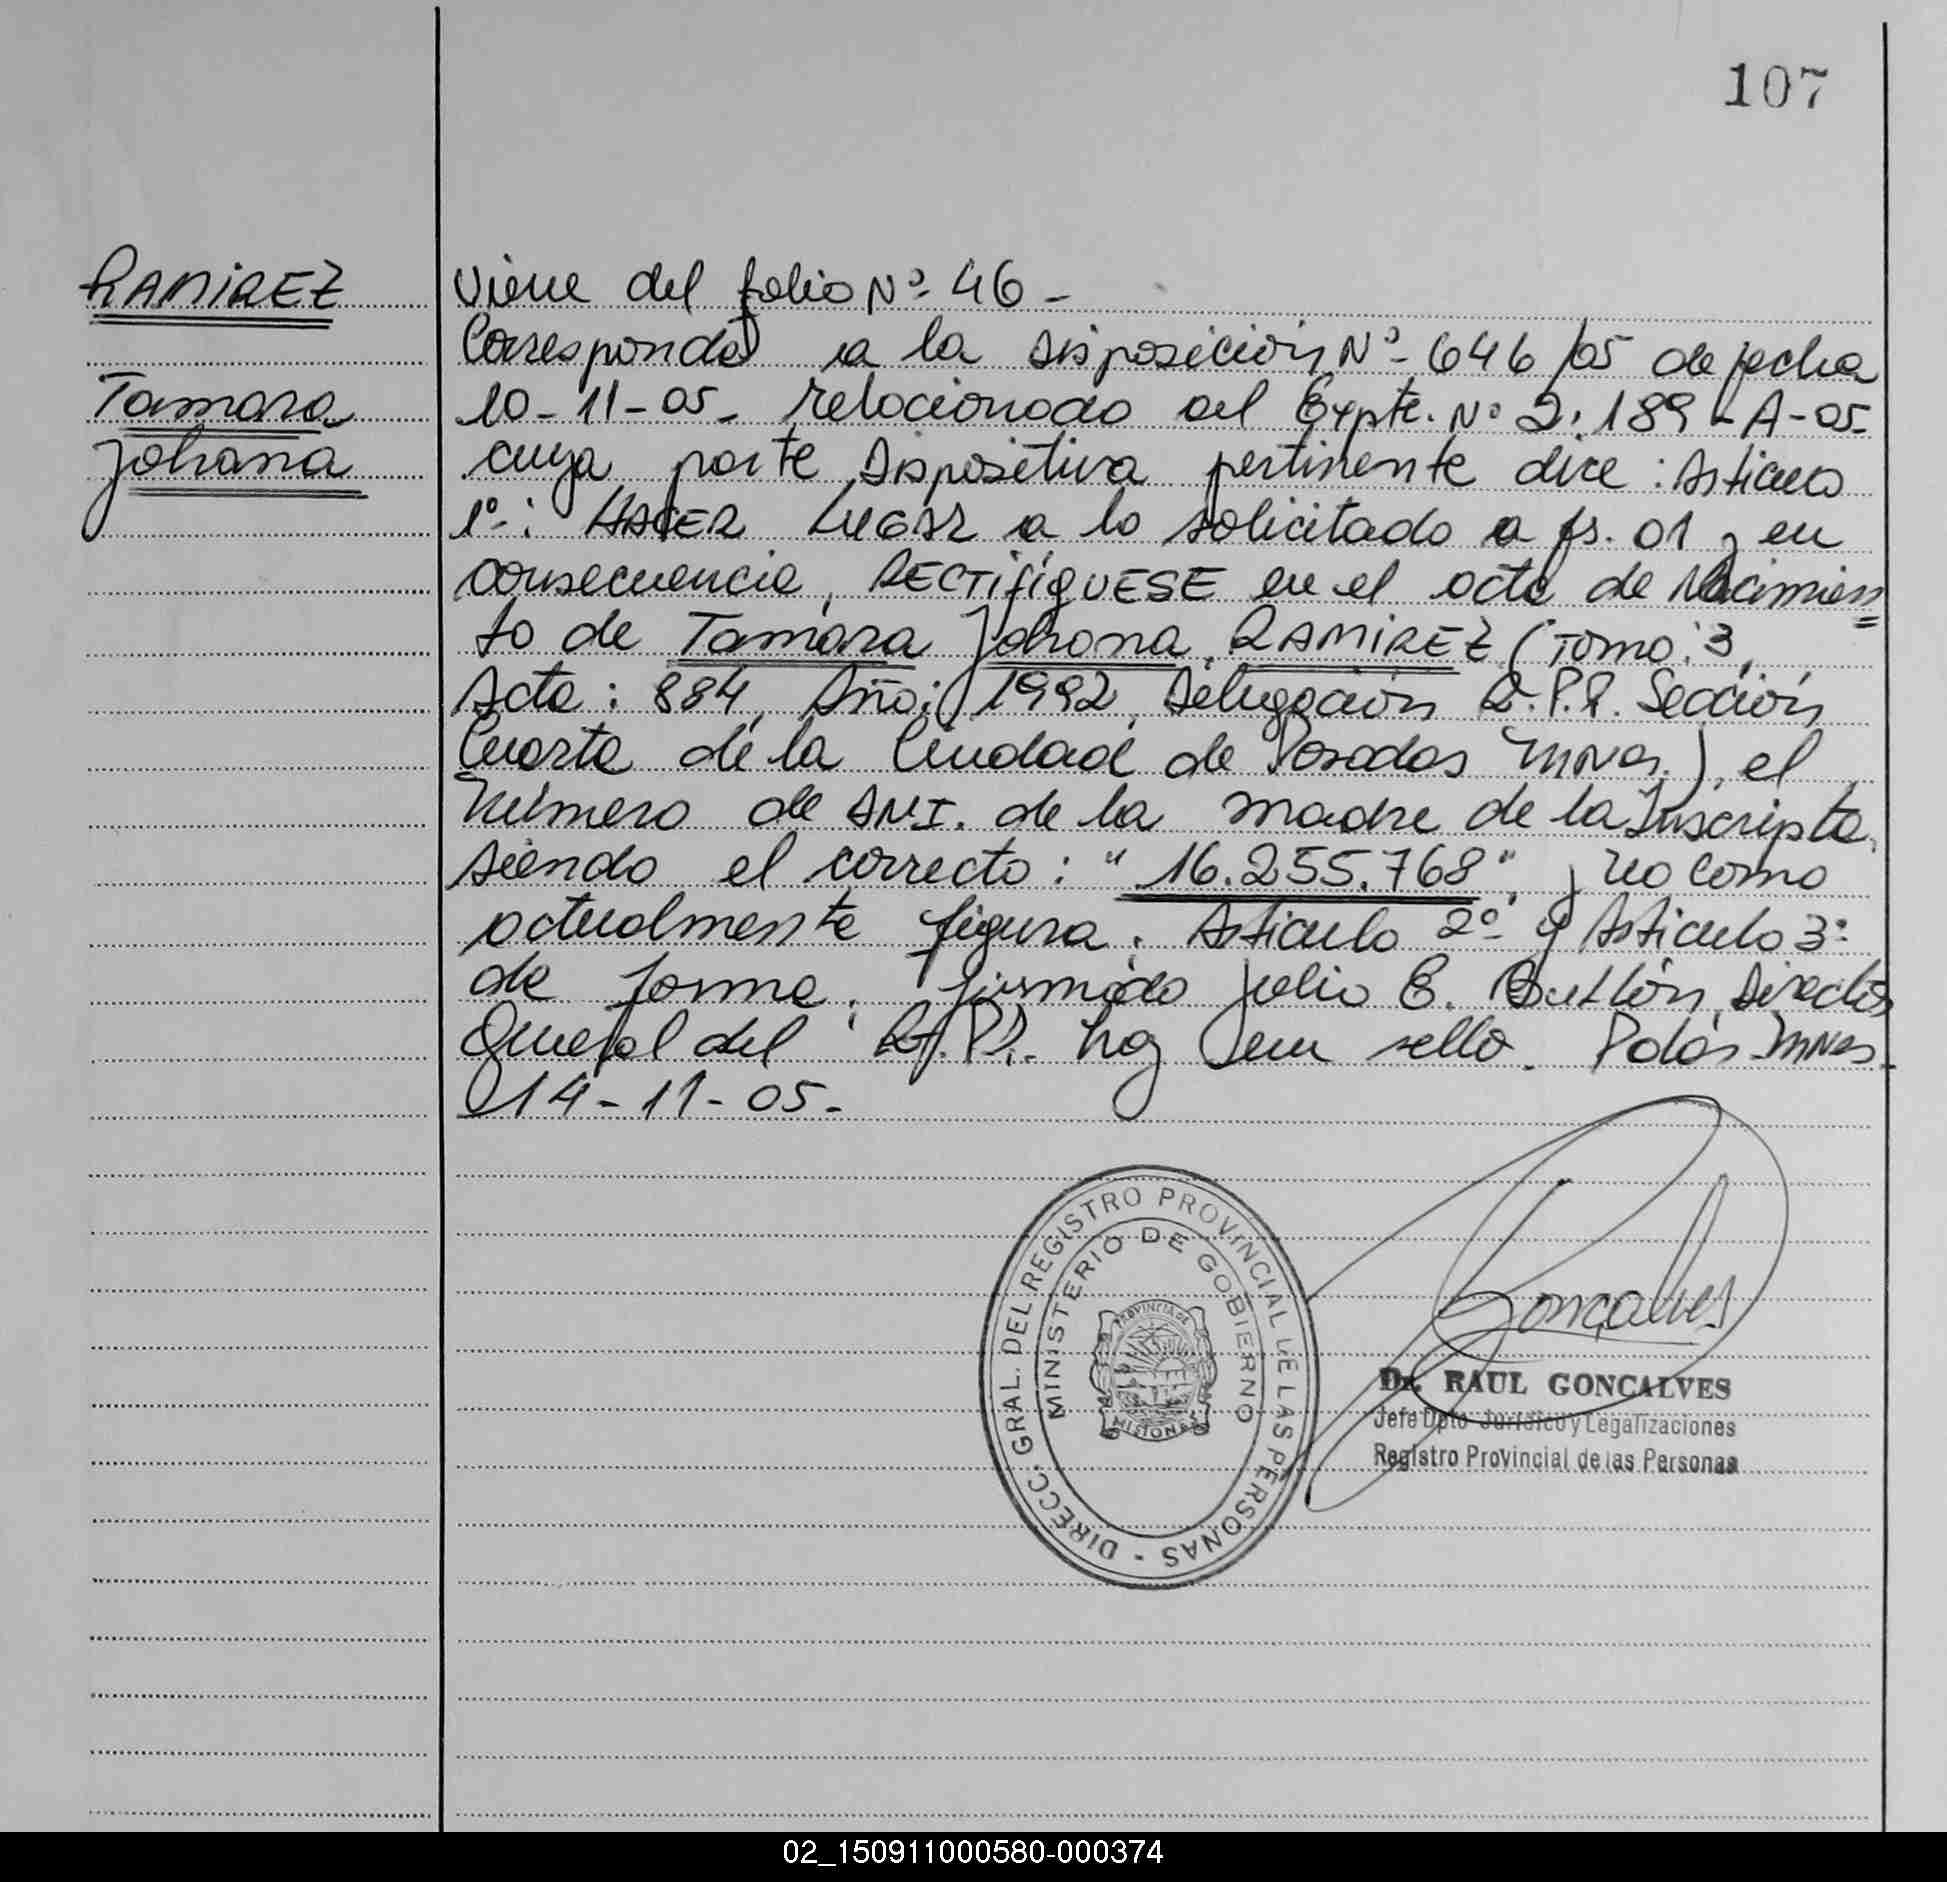 107
RAMIREZ
Tamara
Johana
Viene del folio Nº 46 -
Corresponde a la disposición Nº 646/05 de fecha
10-11-05- relacionado al Expte. Nº 2.189-A-05-
cuya parte dispositiva pertinente dice: Artículo
1º: HACER LUGAR a lo solicitado a fs. 01 y en
consecuencia, RECTIFÍQUESE en el acta de Nacimien=
to de Tamara Johana RAMIREZ (Tomo: 3,
Acta: 884, Año: 1992, Delegación R.P.P. Sección
Cuarta de la Ciudad de Posadas Mnes.), el
Número de DNI. de la madre de la Inscripta,
siendo el correcto: "16.255.768", y no como
actualmente figura. Artículo 2º y Artículo 3º
de forma. firmado Julio E. Director
General del R.P.P. hay un sello. Pdas Mnes.
14-11-05-
DIRECC. GRAL. DEL REGISTRO PROVINCIAL DE LAS PERSONAS -
MINISTERIO DE GOBIERNO
PROVINCIA DE
MISIONES
Goncalves
Dr. RAUL GONCALVES
Jefe Dpto Jurídico y Legalizaciones
Registro Provincial de las Personas
02_150911000580-000374